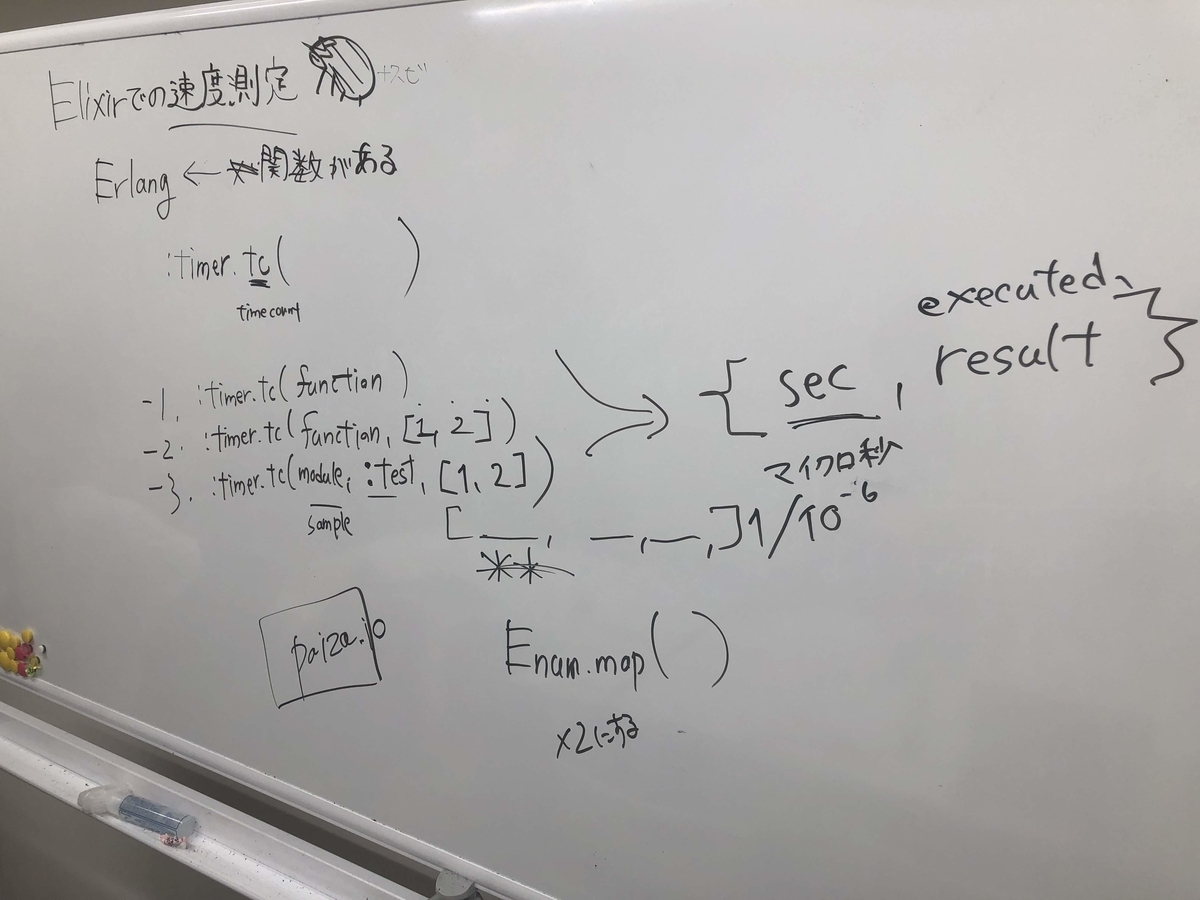 Elixirでの速度測定
ナスビ
Erlang ← 関数がある
:timer.tc( )
time count
-1. :timer.tc(function)
-2. :timer.tc(function, [1, 2])
-3. :timer.tc(module, :test, [1, 2])
sample
{ sec , executed、
result }
マイクロ秒
[ __, __, __, ] 1/10⁻⁶
paiza.io
Enum.map( )
×2にする